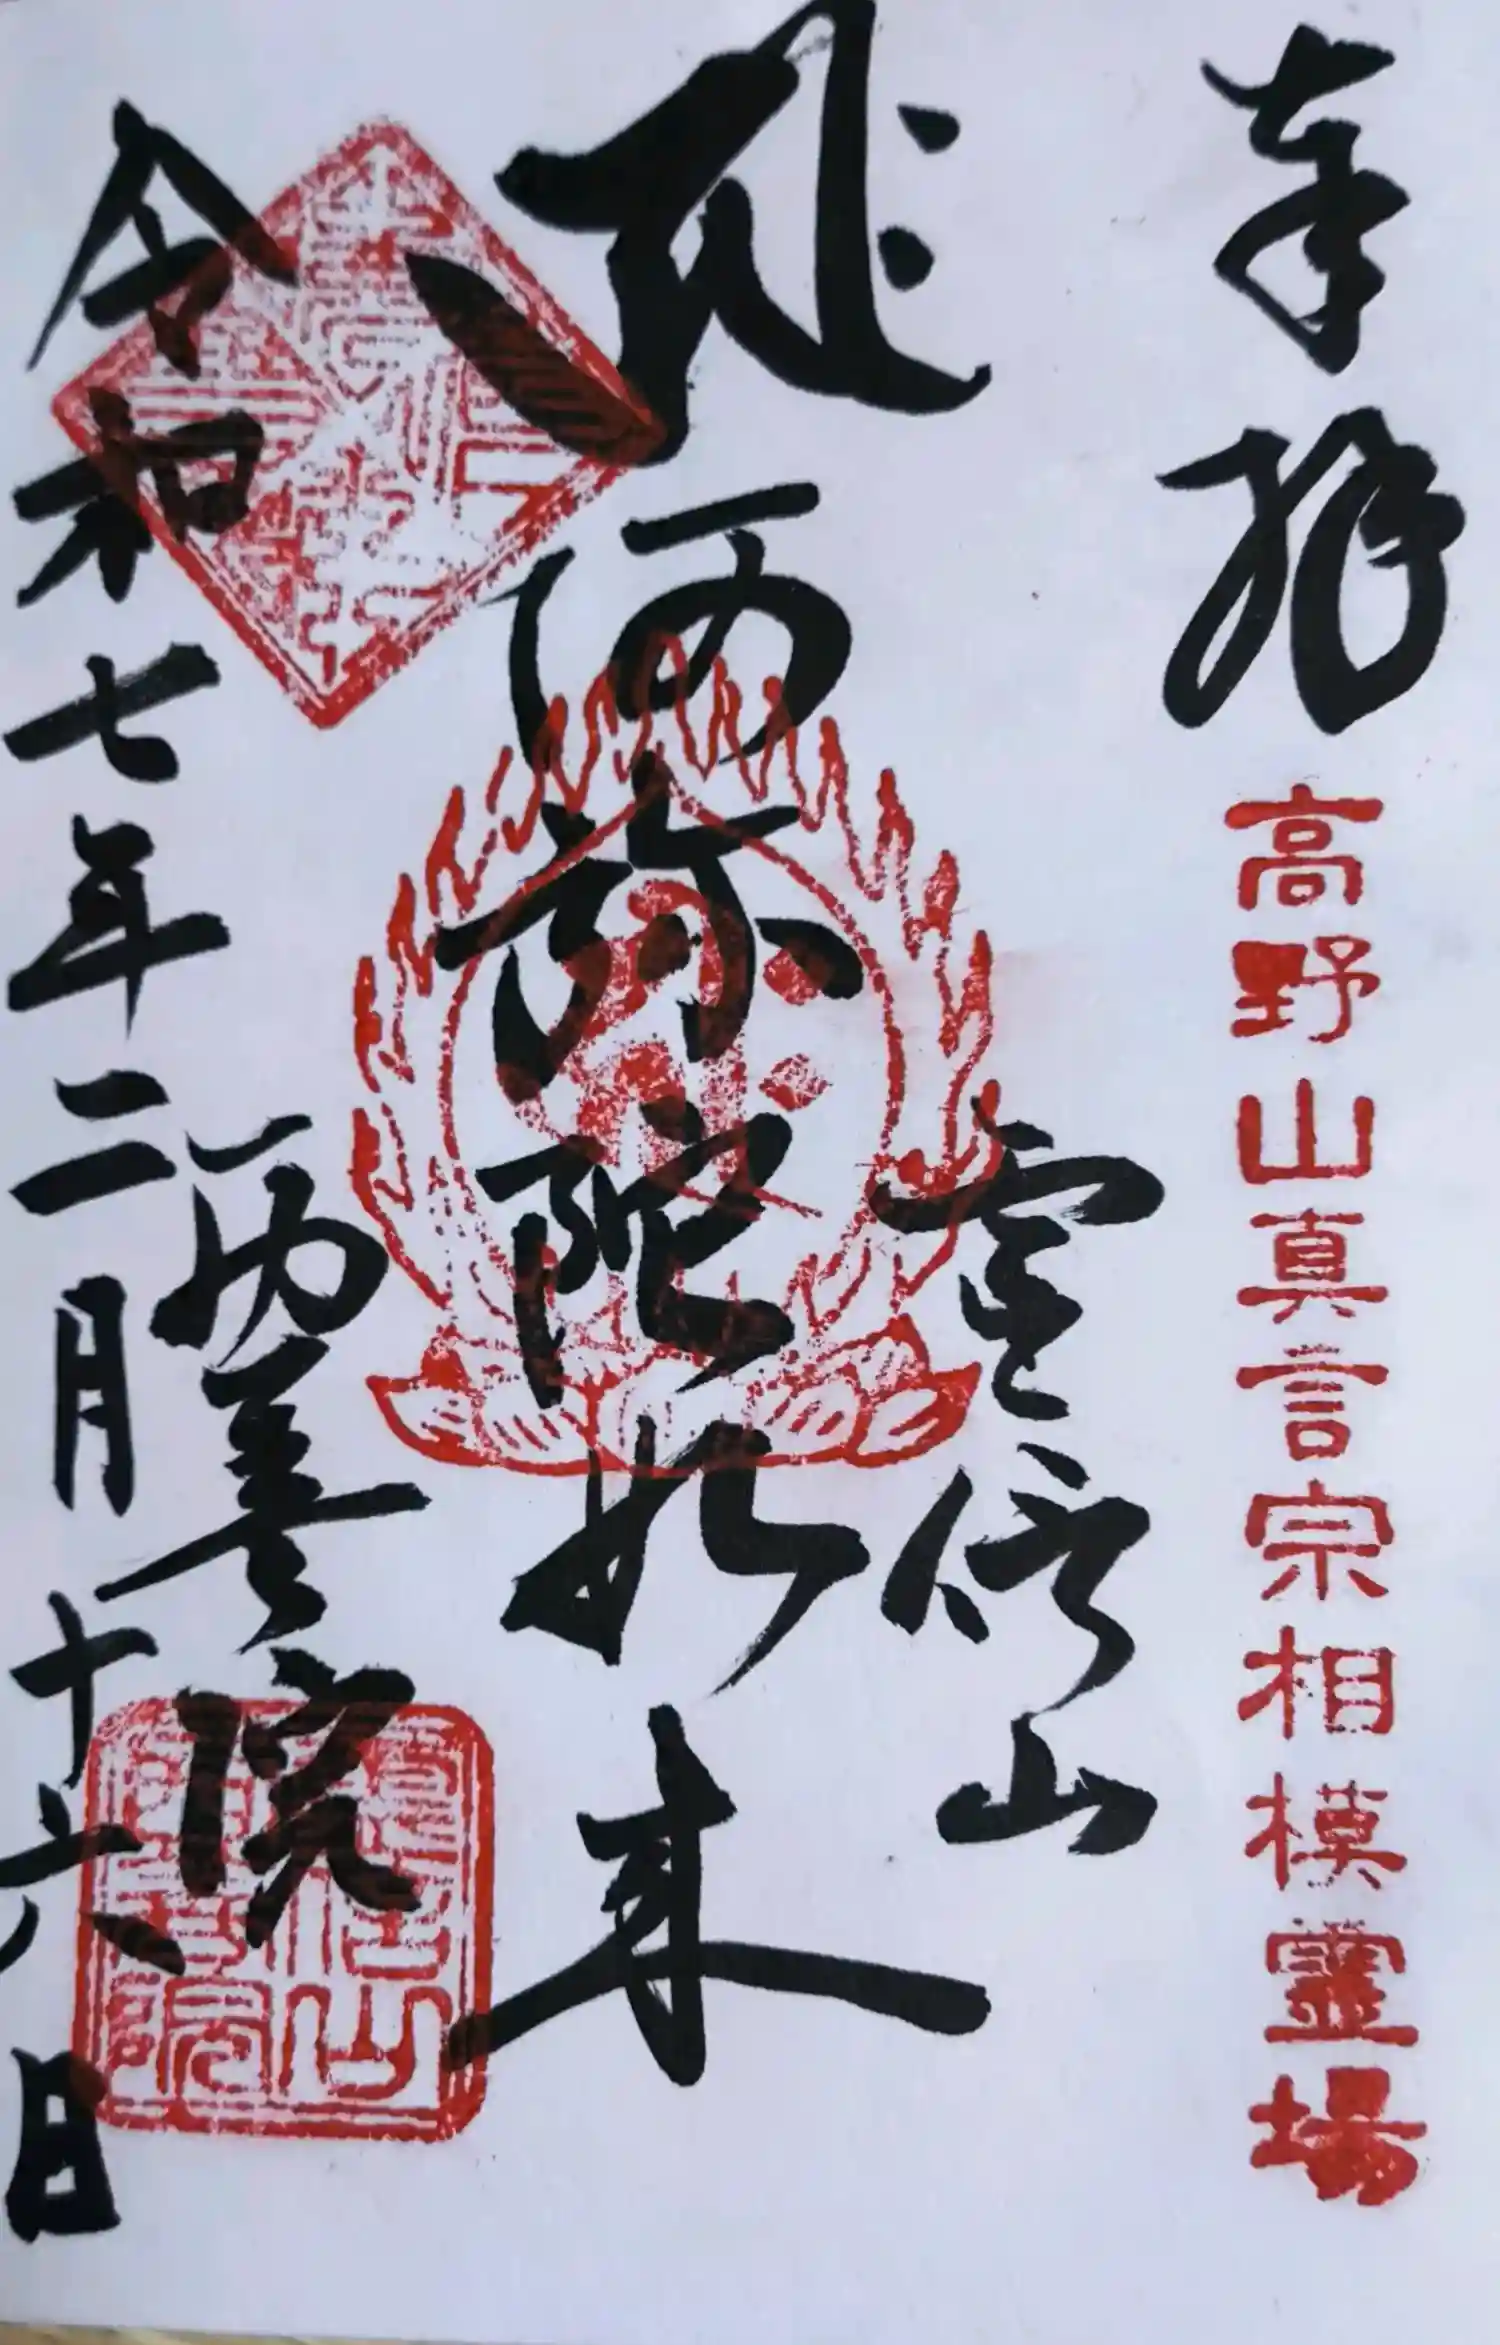 奉拝
高野山真言宗相模霊場
信山
阿弥陀如来
善院
令和七年二月十六日